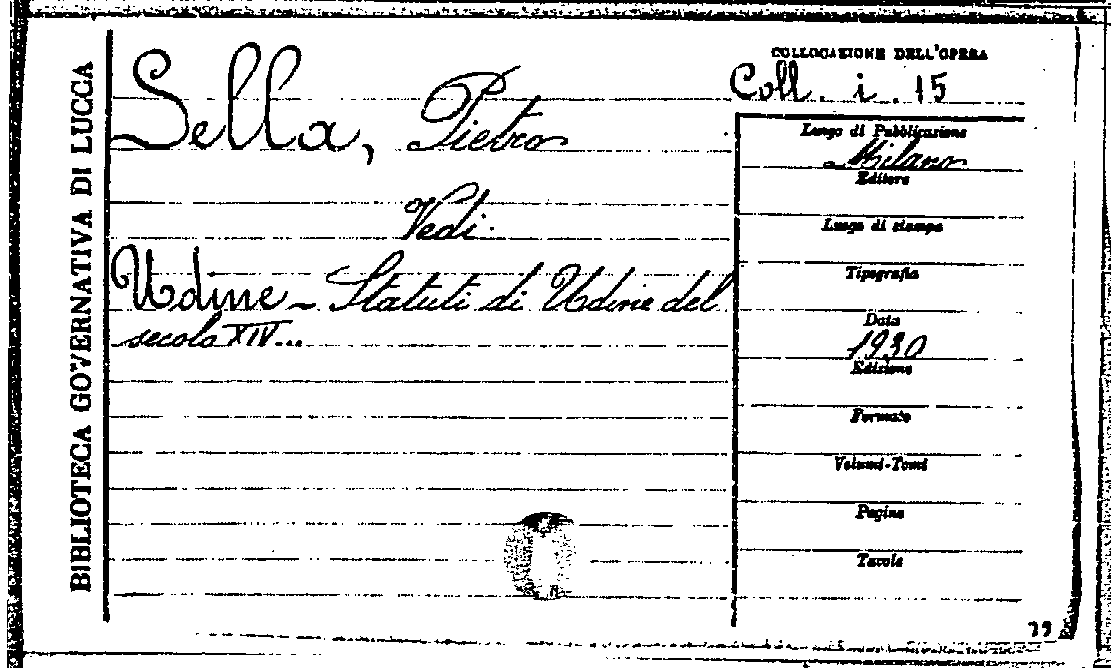 BIBLIOTECA GOVERNATIVA DI LUCCA
Sella, Pietro
Vedi.
Udine - Statuti di Udine del
secolo XIV...
COLLOCAZIONE DELL'OPERA
Coll. i. 15
Luogo di Pubblicazione
Milano
Editore
Luogo di stampa
Tipografia
Data
1930
Edizione
Formato
Volumi-Tomi
Pagine
Tavole